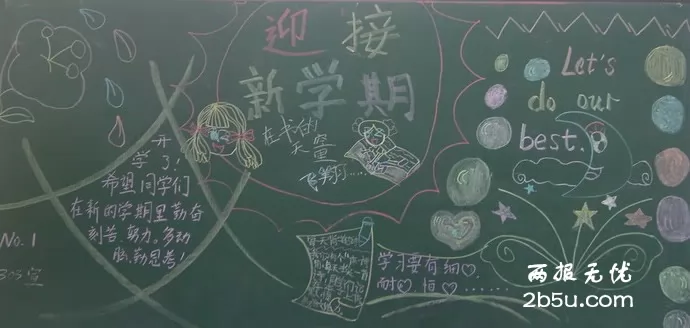 迎接
新学期
在书的
天空
飞翔……
Let's
do our
best.
开
学了!
希望同学们
在新的学期里勤奋
刻苦、努力、多动
脑、勤思考!
No.1
305室
学习要有细♡,
耐♡,恒♡……
两报无忧
2b5u.com